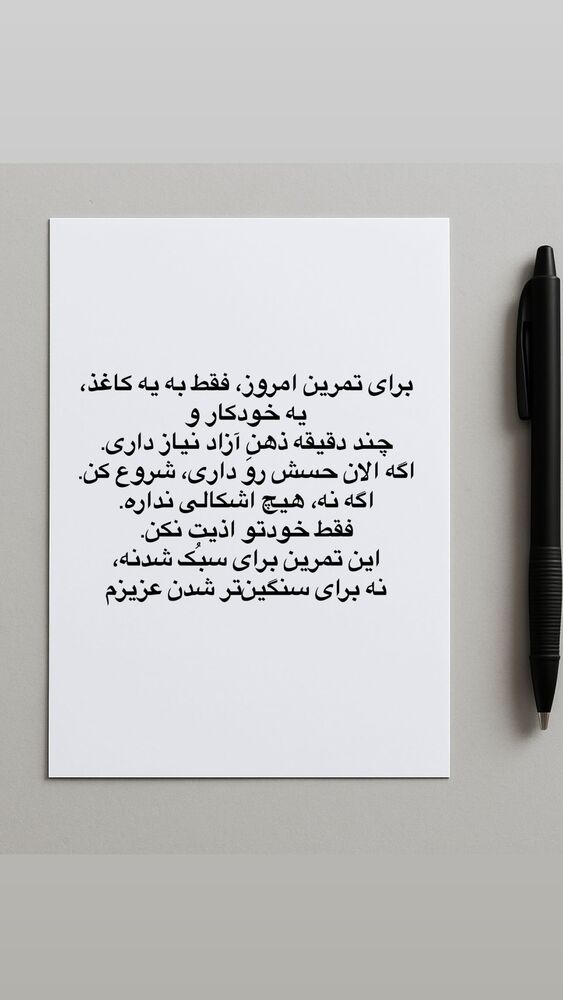 برای تمرین امروز، فقط به یه کاغذ،
یه خودکار و
چند دقیقه ذهنِ آزاد نیاز داری.
اگه الان حسش روَ داری، شروع کن.
اگه نه، هیچ اشکالی نداره.
فقط خودتو اذیت نکن.
این تمرین برای سبُک شدنه،
نه برای سنگین‌تر شدن عزیزم